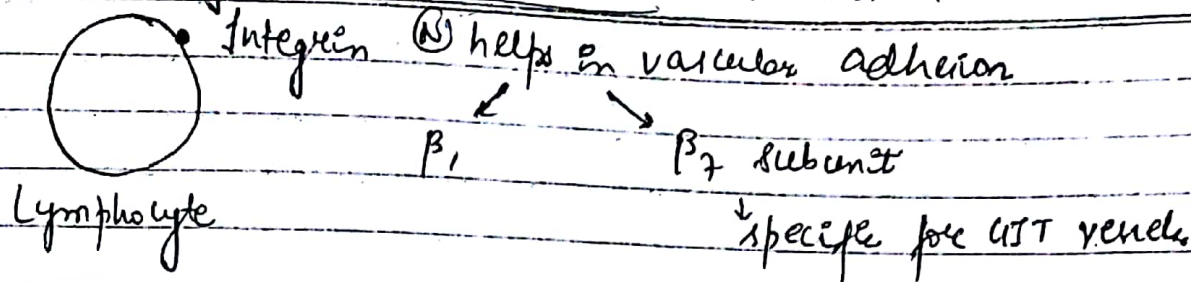 Integrin Ⓝ helps in vascular adhesion
β₁ β₇ subunit
Lymphocyte
specific for GIT vessels